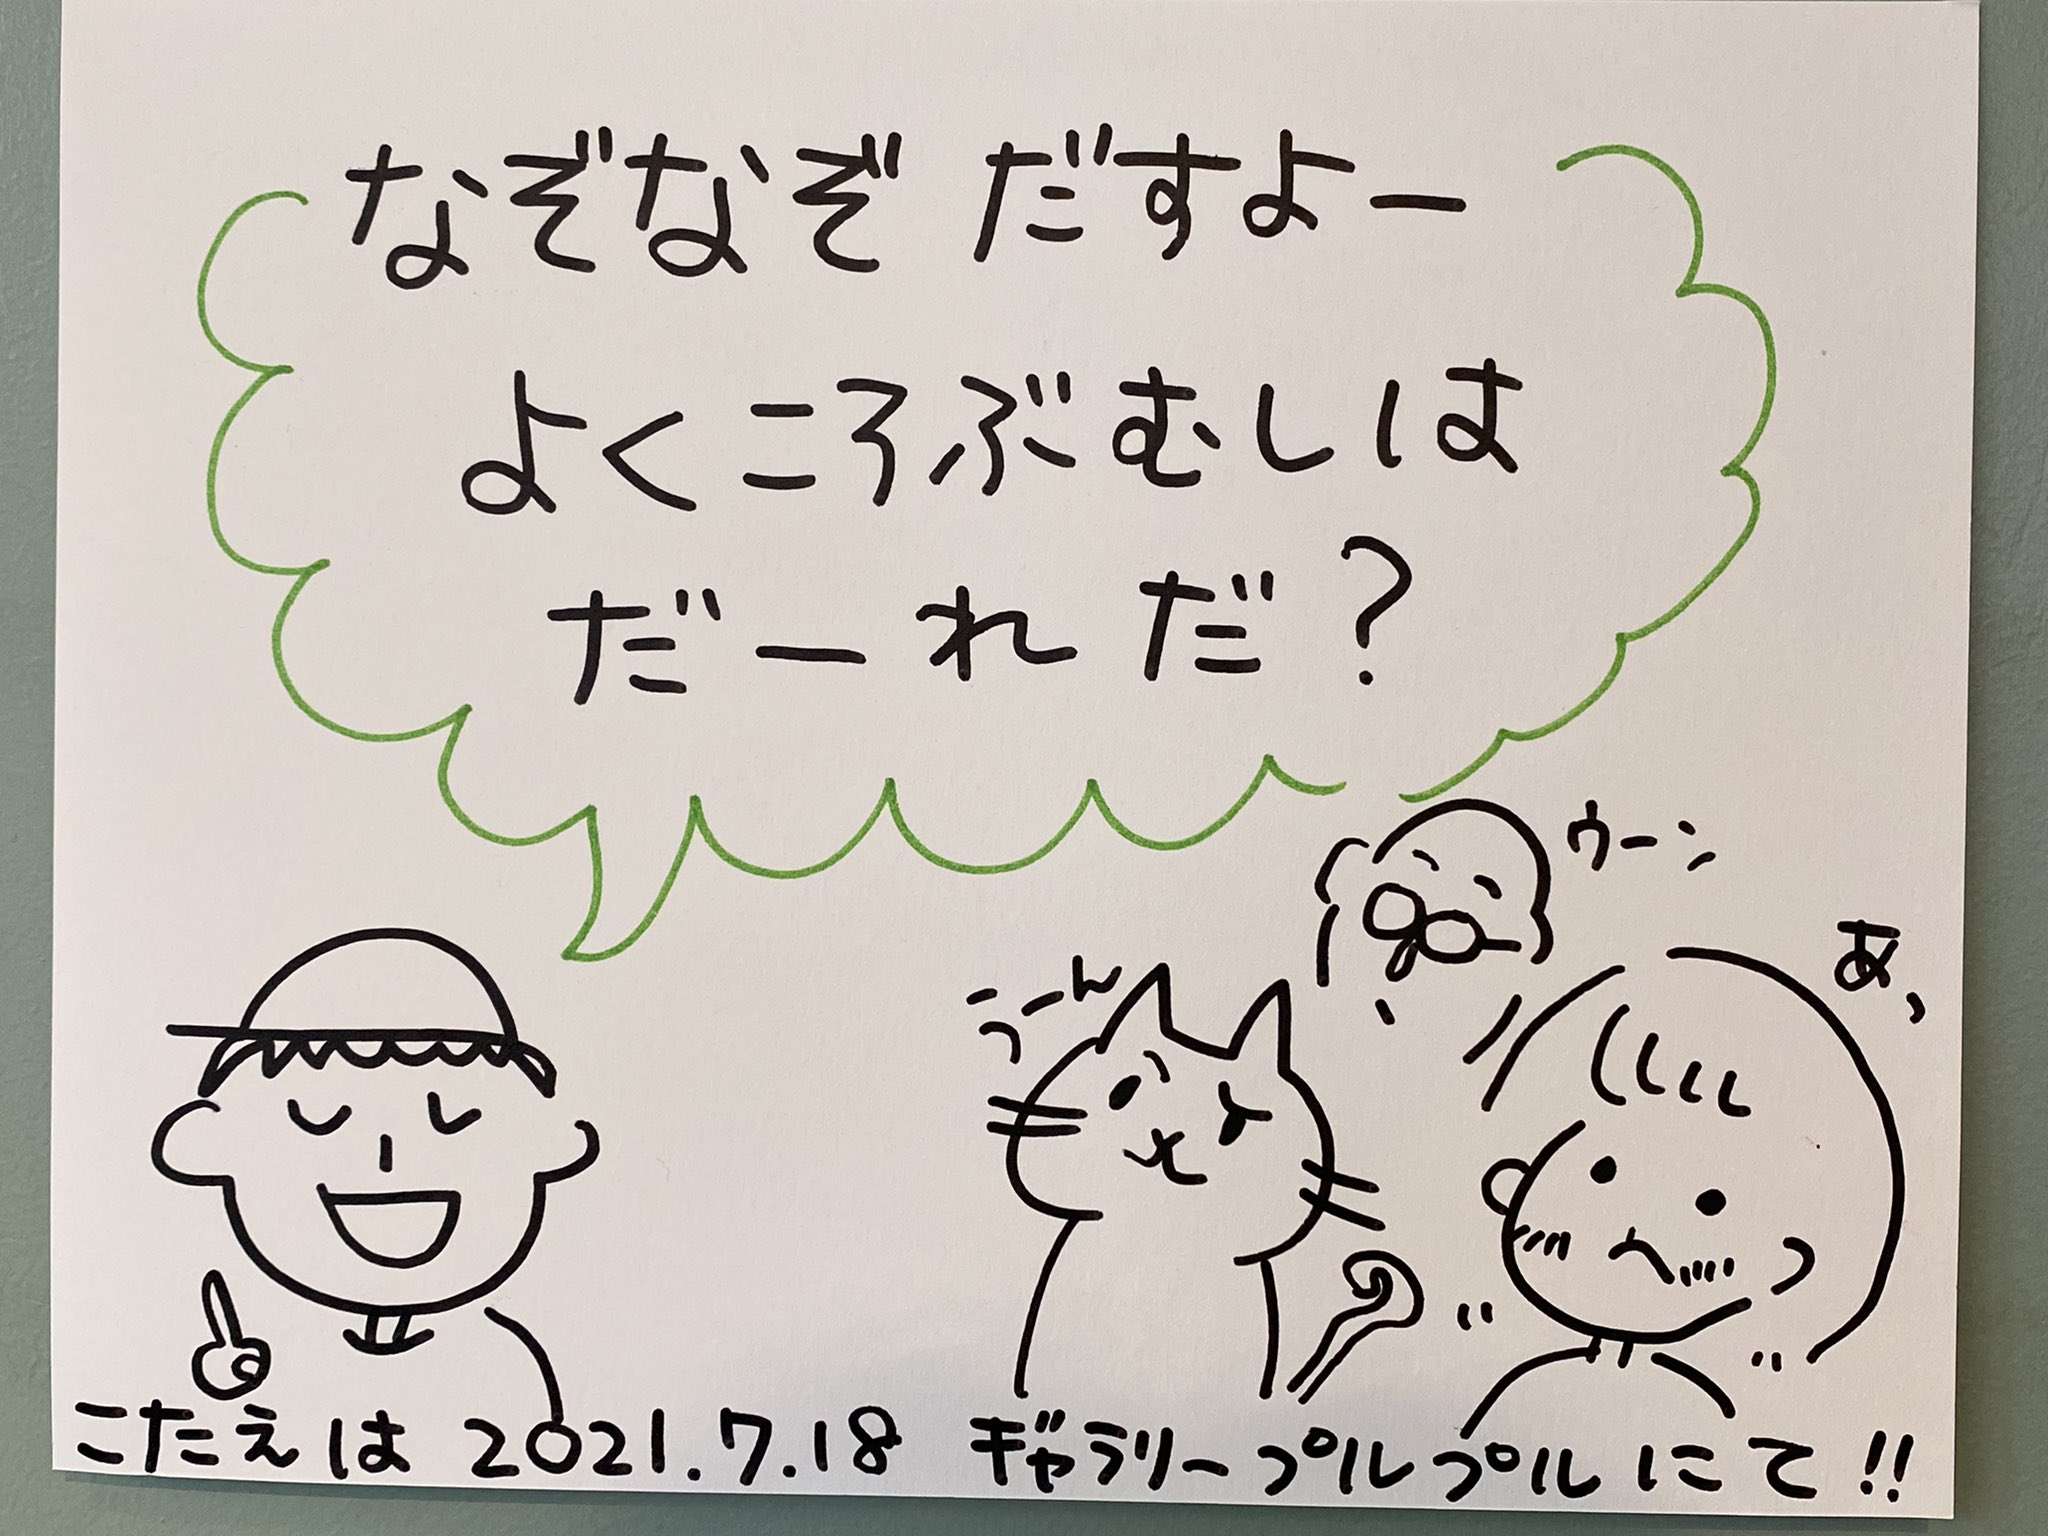 なぞなぞ だすよー
よくころぶむしは
だーれだ?
ウーン
あっ
うーん
こたえは 2021.7.18 ギャラリープルプルにて!!